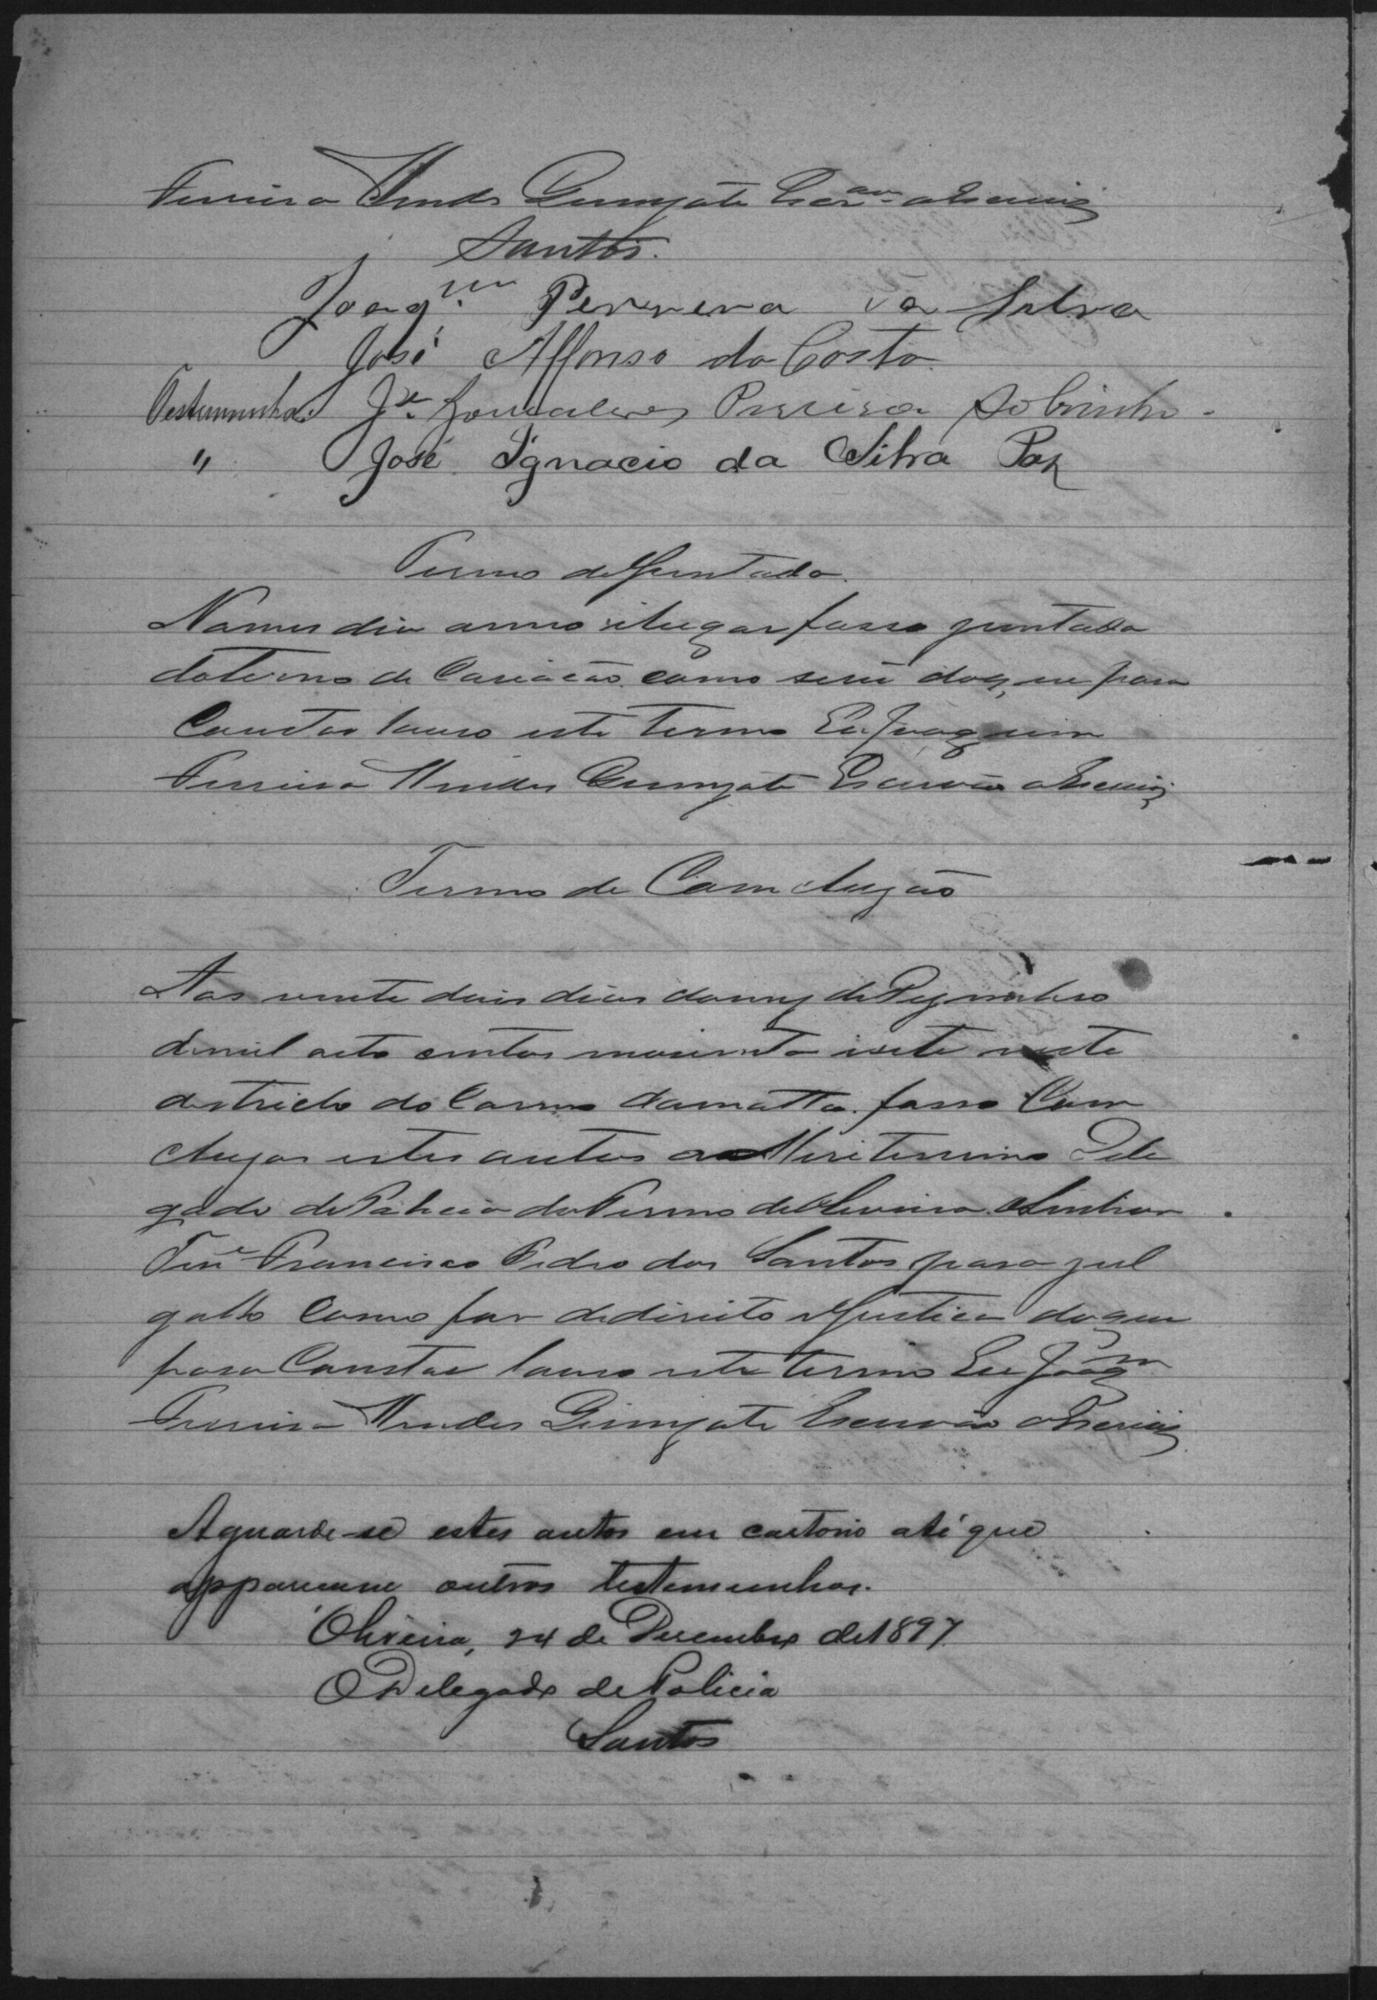 Ferreira Mendes Escr.am
Santos.
Joaq.m Perrera da Silva
José Affonso da Costa
Testemunhas J.e Gonsalves Parreira Sobrinho.
" José Ignacio da Silva Paz
Termo de Juntada.
No mesmo dia anno e lugar fasso juntada
do termo de como se vê do q̃ue para
Constar lavro este termo Eu Joaquim
Ferreira Mendes Escrivão
Termo de Comclução
Aos vinte dois dias do mez de Dezembro
de mil oito centos noventa i sete neste
districto do Carmo da matta. fasso Com
cluzos estes autos ao Meritissimo Dele
gado de Policia do Termo de Oliveira Senhor
Ten.e Francisco Pedro dos Santos para jul
gallo como for de direito e Justica do que
para Constar lavro este termo Eu Joaq.m
Ferreira Mendes Escrivão
Aguarde-se estes autos em cartorio até que
appareção outras testemunhas.
Oliveira, 24 de Dezembro de 1897.
O Delegado de Policia
Santos